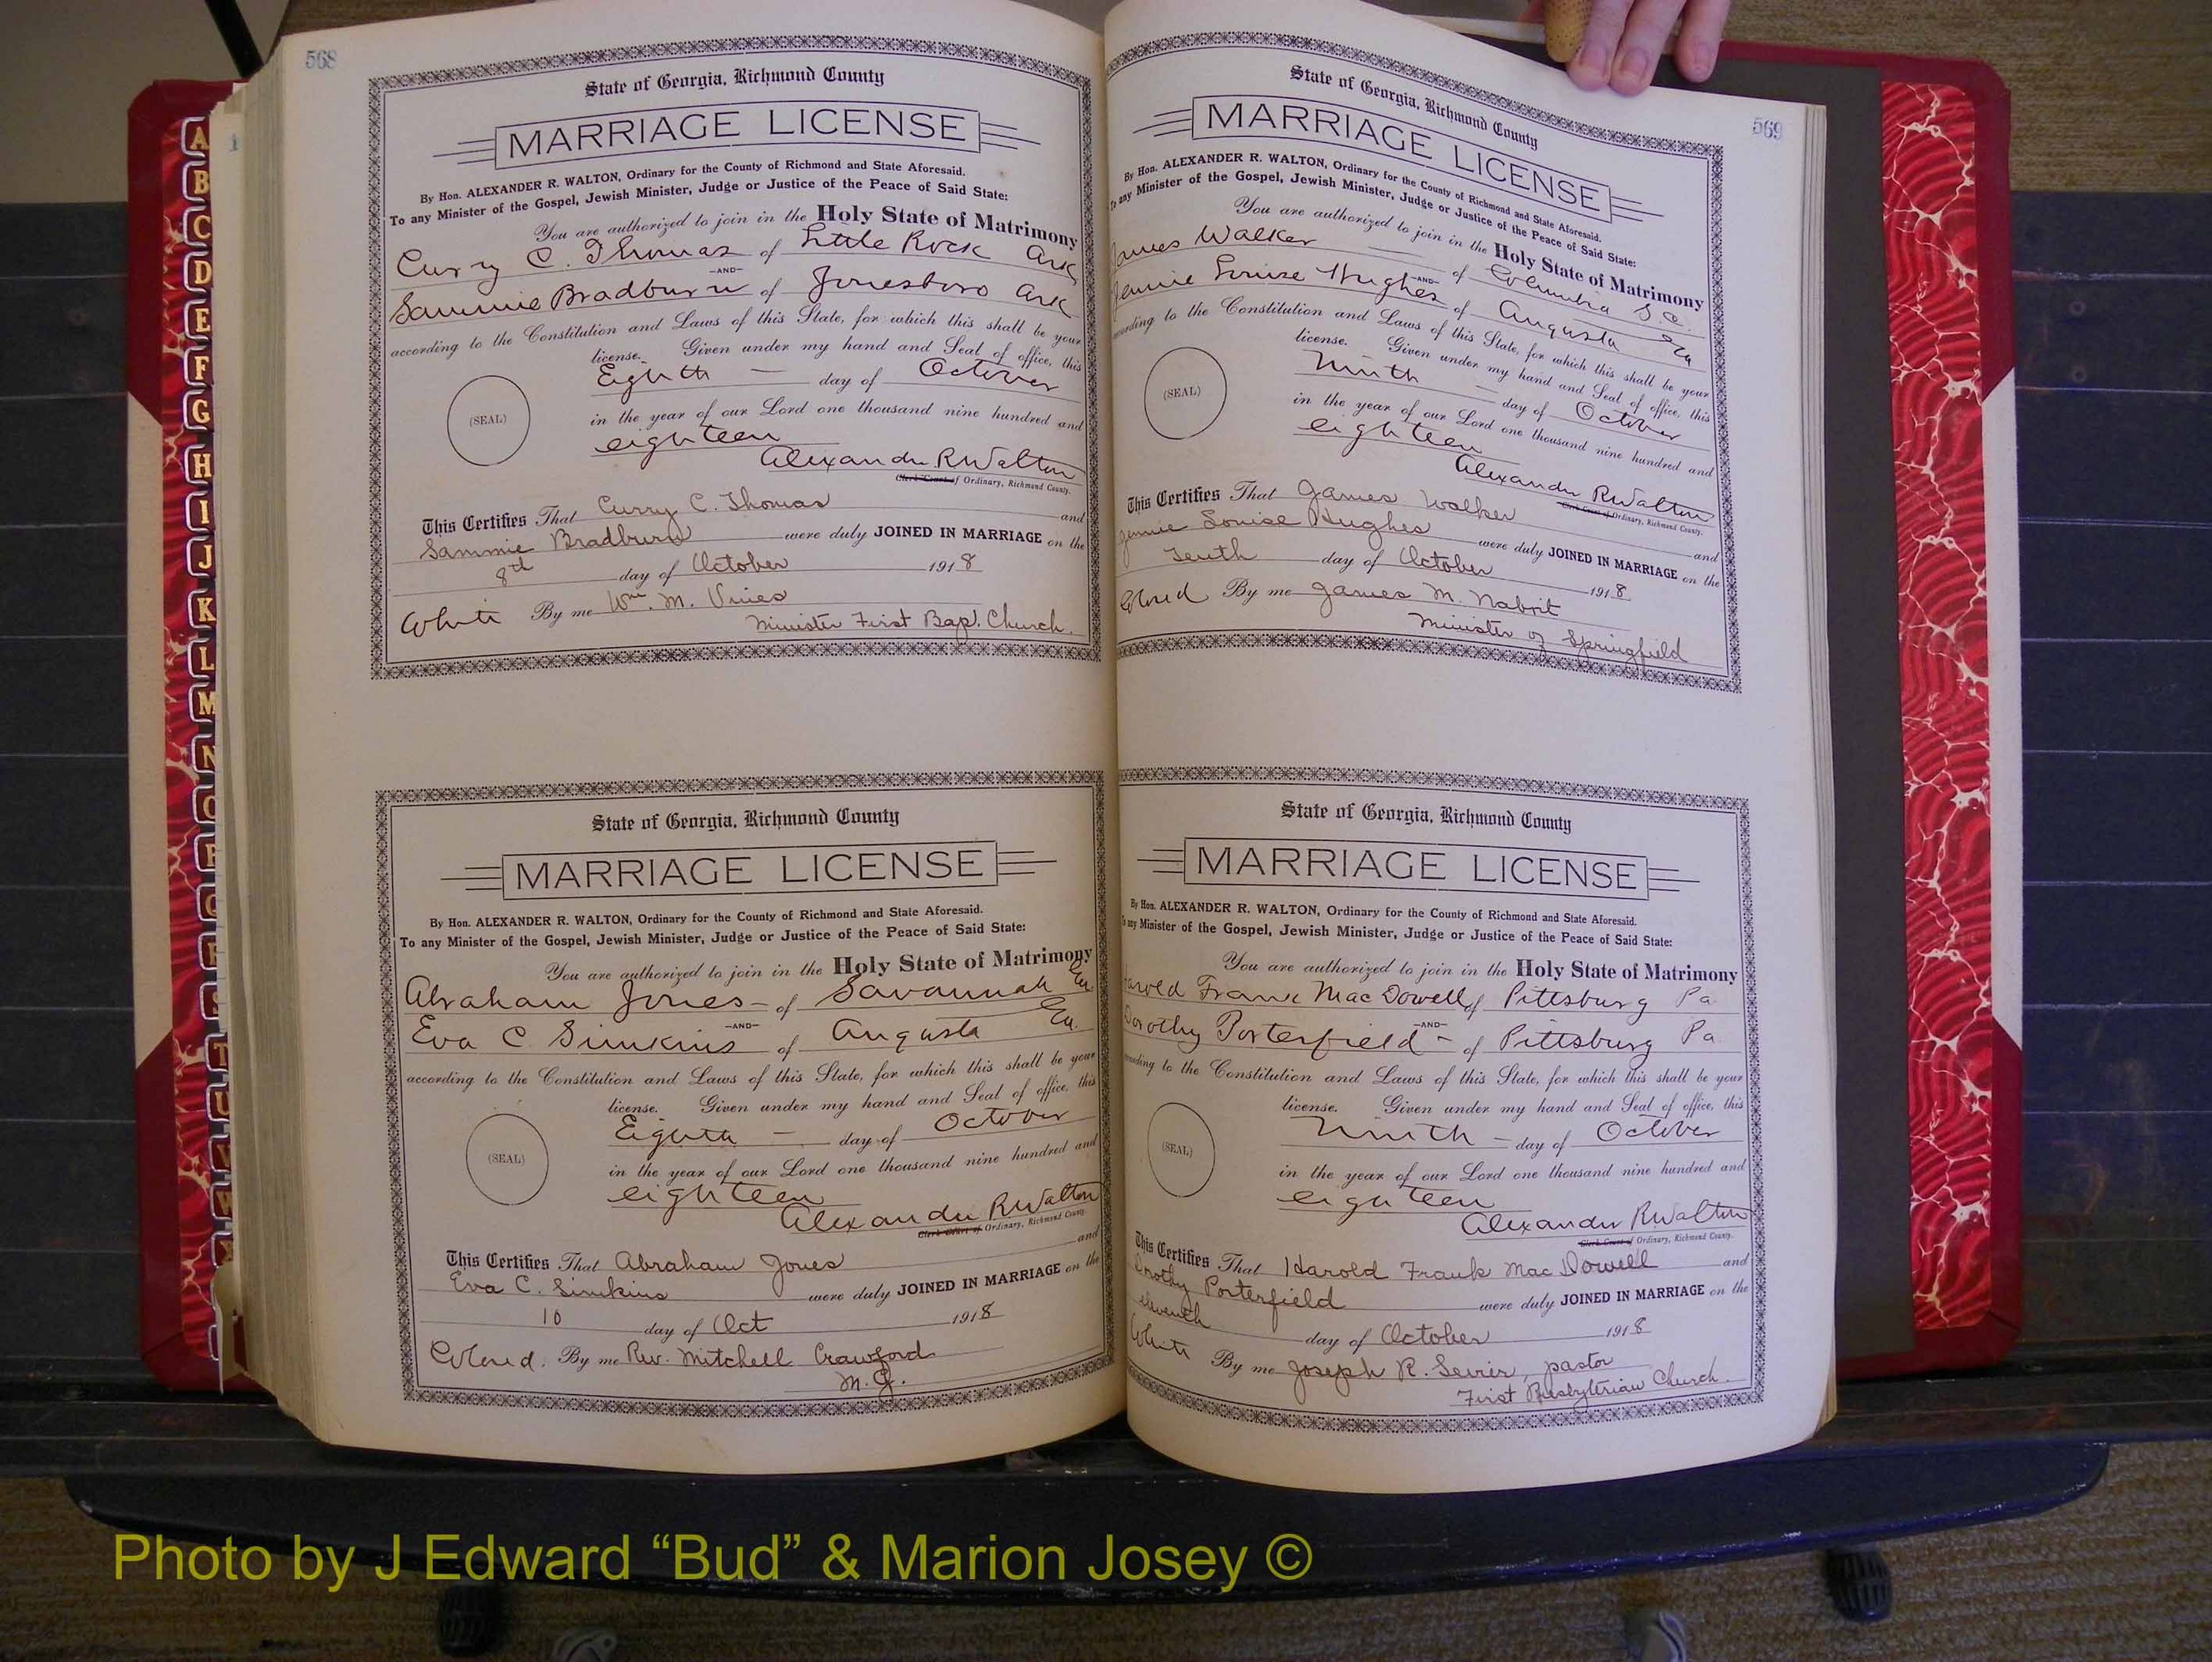 568
State of Georgia, Richmond County
MARRIAGE LICENSE
By Hon. ALEXANDER R. WALTON, Ordinary for the County of Richmond and State Aforesaid.
To any Minister of the Gospel, Jewish Minister, Judge or Justice of the Peace of Said State:
You are authorized to join in the Holy State of Matrimony
Curry C. Thomas of Little Rock Ark
—AND—
Sammie Bradburn of Jonesboro Ark
according to the Constitution and Laws of this State, for which this shall be your
license. Given under my hand and Seal of office, this
Eighth — day of October
(SEAL)
in the year of our Lord one thousand nine hundred and
eighteen
Alexander R Walton
Clerk Court of Ordinary, Richmond County.
This Certifies That Curry C. Thomas and
Sammie Bradburn were duly JOINED IN MARRIAGE on the
8th day of October 1918
White By me Wm. M. Vines
Minister First Bap. Church.
State of Georgia, Richmond County
MARRIAGE LICENSE
By Hon. ALEXANDER R. WALTON, Ordinary for the County of Richmond and State Aforesaid.
To any Minister of the Gospel, Jewish Minister, Judge or Justice of the Peace of Said State:
You are authorized to join in the Holy State of Matrimony
Abraham Jones — of Savannah Ga
—AND—
Eva C Simkins of Augusta Ga.
according to the Constitution and Laws of this State, for which this shall be your
license. Given under my hand and Seal of office, this
Eighth — day of October
(SEAL)
in the year of our Lord one thousand nine hundred and
eighteen
Alexander R Walton
Clerk Court of Ordinary, Richmond County.
This Certifies That Abraham Jones and
Eva C. Simkins were duly JOINED IN MARRIAGE on the
10 day of Oct 1918
Colored. By me Rev. Mitchell Crawford
M. G.
569
State of Georgia, Richmond County
MARRIAGE LICENSE
By Hon. ALEXANDER R. WALTON, Ordinary for the County of Richmond and State Aforesaid.
To any Minister of the Gospel, Jewish Minister, Judge or Justice of the Peace of Said State:
You are authorized to join in the Holy State of Matrimony
James Walker — of Columbia S.C.
—AND—
Jennie Louise Hughes of Augusta Ga
according to the Constitution and Laws of this State, for which this shall be your
license. Given under my hand and Seal of office, this
Ninth — day of October
(SEAL)
in the year of our Lord one thousand nine hundred and
eighteen
Alexander R Walton
Clerk Court of Ordinary, Richmond County.
This Certifies That James Walker and
Jennie Louise Hughes were duly JOINED IN MARRIAGE on the
Tenth day of October 1918
Colored By me James M. Nabrit
Minister of Springfield
State of Georgia, Richmond County
MARRIAGE LICENSE
By Hon. ALEXANDER R. WALTON, Ordinary for the County of Richmond and State Aforesaid.
To any Minister of the Gospel, Jewish Minister, Judge or Justice of the Peace of Said State:
You are authorized to join in the Holy State of Matrimony
Harold Frank Mac Dowell of Pittsburg Pa
—AND—
Dorothy Porterfield — of Pittsburg Pa
according to the Constitution and Laws of this State, for which this shall be your
license. Given under my hand and Seal of office, this
Ninth — day of October
(SEAL)
in the year of our Lord one thousand nine hundred and
eighteen
Alexander R Walton
Clerk Court of Ordinary, Richmond County.
This Certifies That Harold Frank Mac Dowell and
Dorothy Porterfield were duly JOINED IN MARRIAGE on the
eleventh day of October 1918
White By me Joseph R. Sevier, pastor
First Presbyterian Church.
A
B
C
D
E
F
G
H
I
J
K
L
M
N
O
P
Q
R
S
T
U
V
W
Photo by J Edward “Bud” & Marion Josey ©